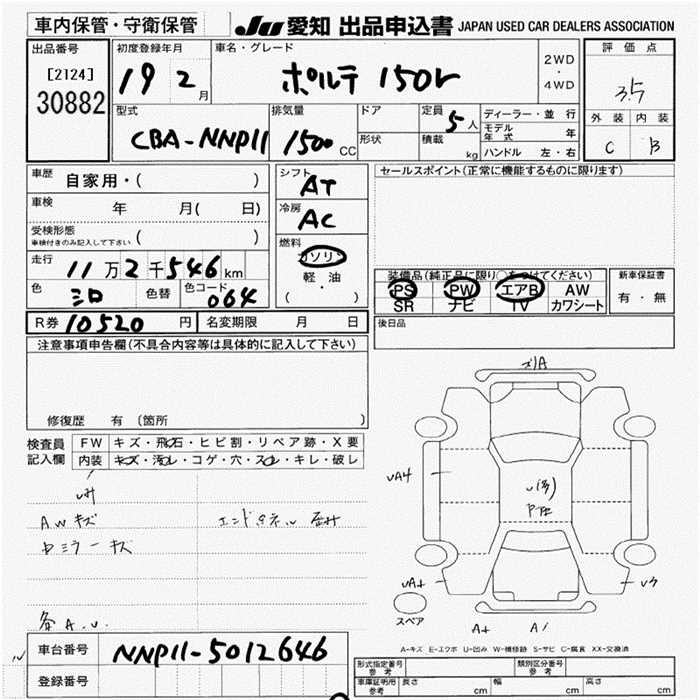 車内保管・守衛保管
JU 愛知 出品申込書 JAPAN USED CAR DEALERS ASSOCIATION
出品番号
[2124]
30882
初度登録年月
19 2月
車名・グレード
ポルテ 150r
2WD
・
4WD
評価点
3.5
外装 内装
C B
型式
CBA-NNP11
排気量
1500 CC
ドア
形状
定員 5人
積載 kg
ディーラー・並行
モデル年式 年
ハンドル 左・右
車歴 自家用・( )
車検 年 月( 日)
受検形態
車検付きのみ記入して下さい ( )
走行 11万2千546km
色 シロ 色替 色コード 064
R券 10520円 名変期限 月 日
シフト
AT
冷房
AC
燃料
ガソリン
・
軽・油
( )
セールスポイント(正常に機能するものに限ります)
装備品(純正品に限り○をつけてください)
PS PW エアB AW
SR ナビ TV カワシート
新車保証書
有・無
後日品
注意事項申告欄(不具合内容等は具体的に記入して下さい)
修復歴 有 〔箇所 〕
検査員記入欄
FW キズ・飛石・ヒビ割・リペア跡・X要
内装 キズ・汚れ・コゲ・穴・スレ・キレ・破レ
AWキズ
ミラーキズ
エンドパネル
A.U.
UA4
UA+
A+
スペア
A-キズ E-エクボ U-凹み W-補修跡 S-サビ C-腐食 XX-交換済
車台番号 NNP11-5012646
登録番号
型式指定番号
参考
類別区分番号
参考
車庫証明用
参考
長さ cm 幅 cm 高さ cm